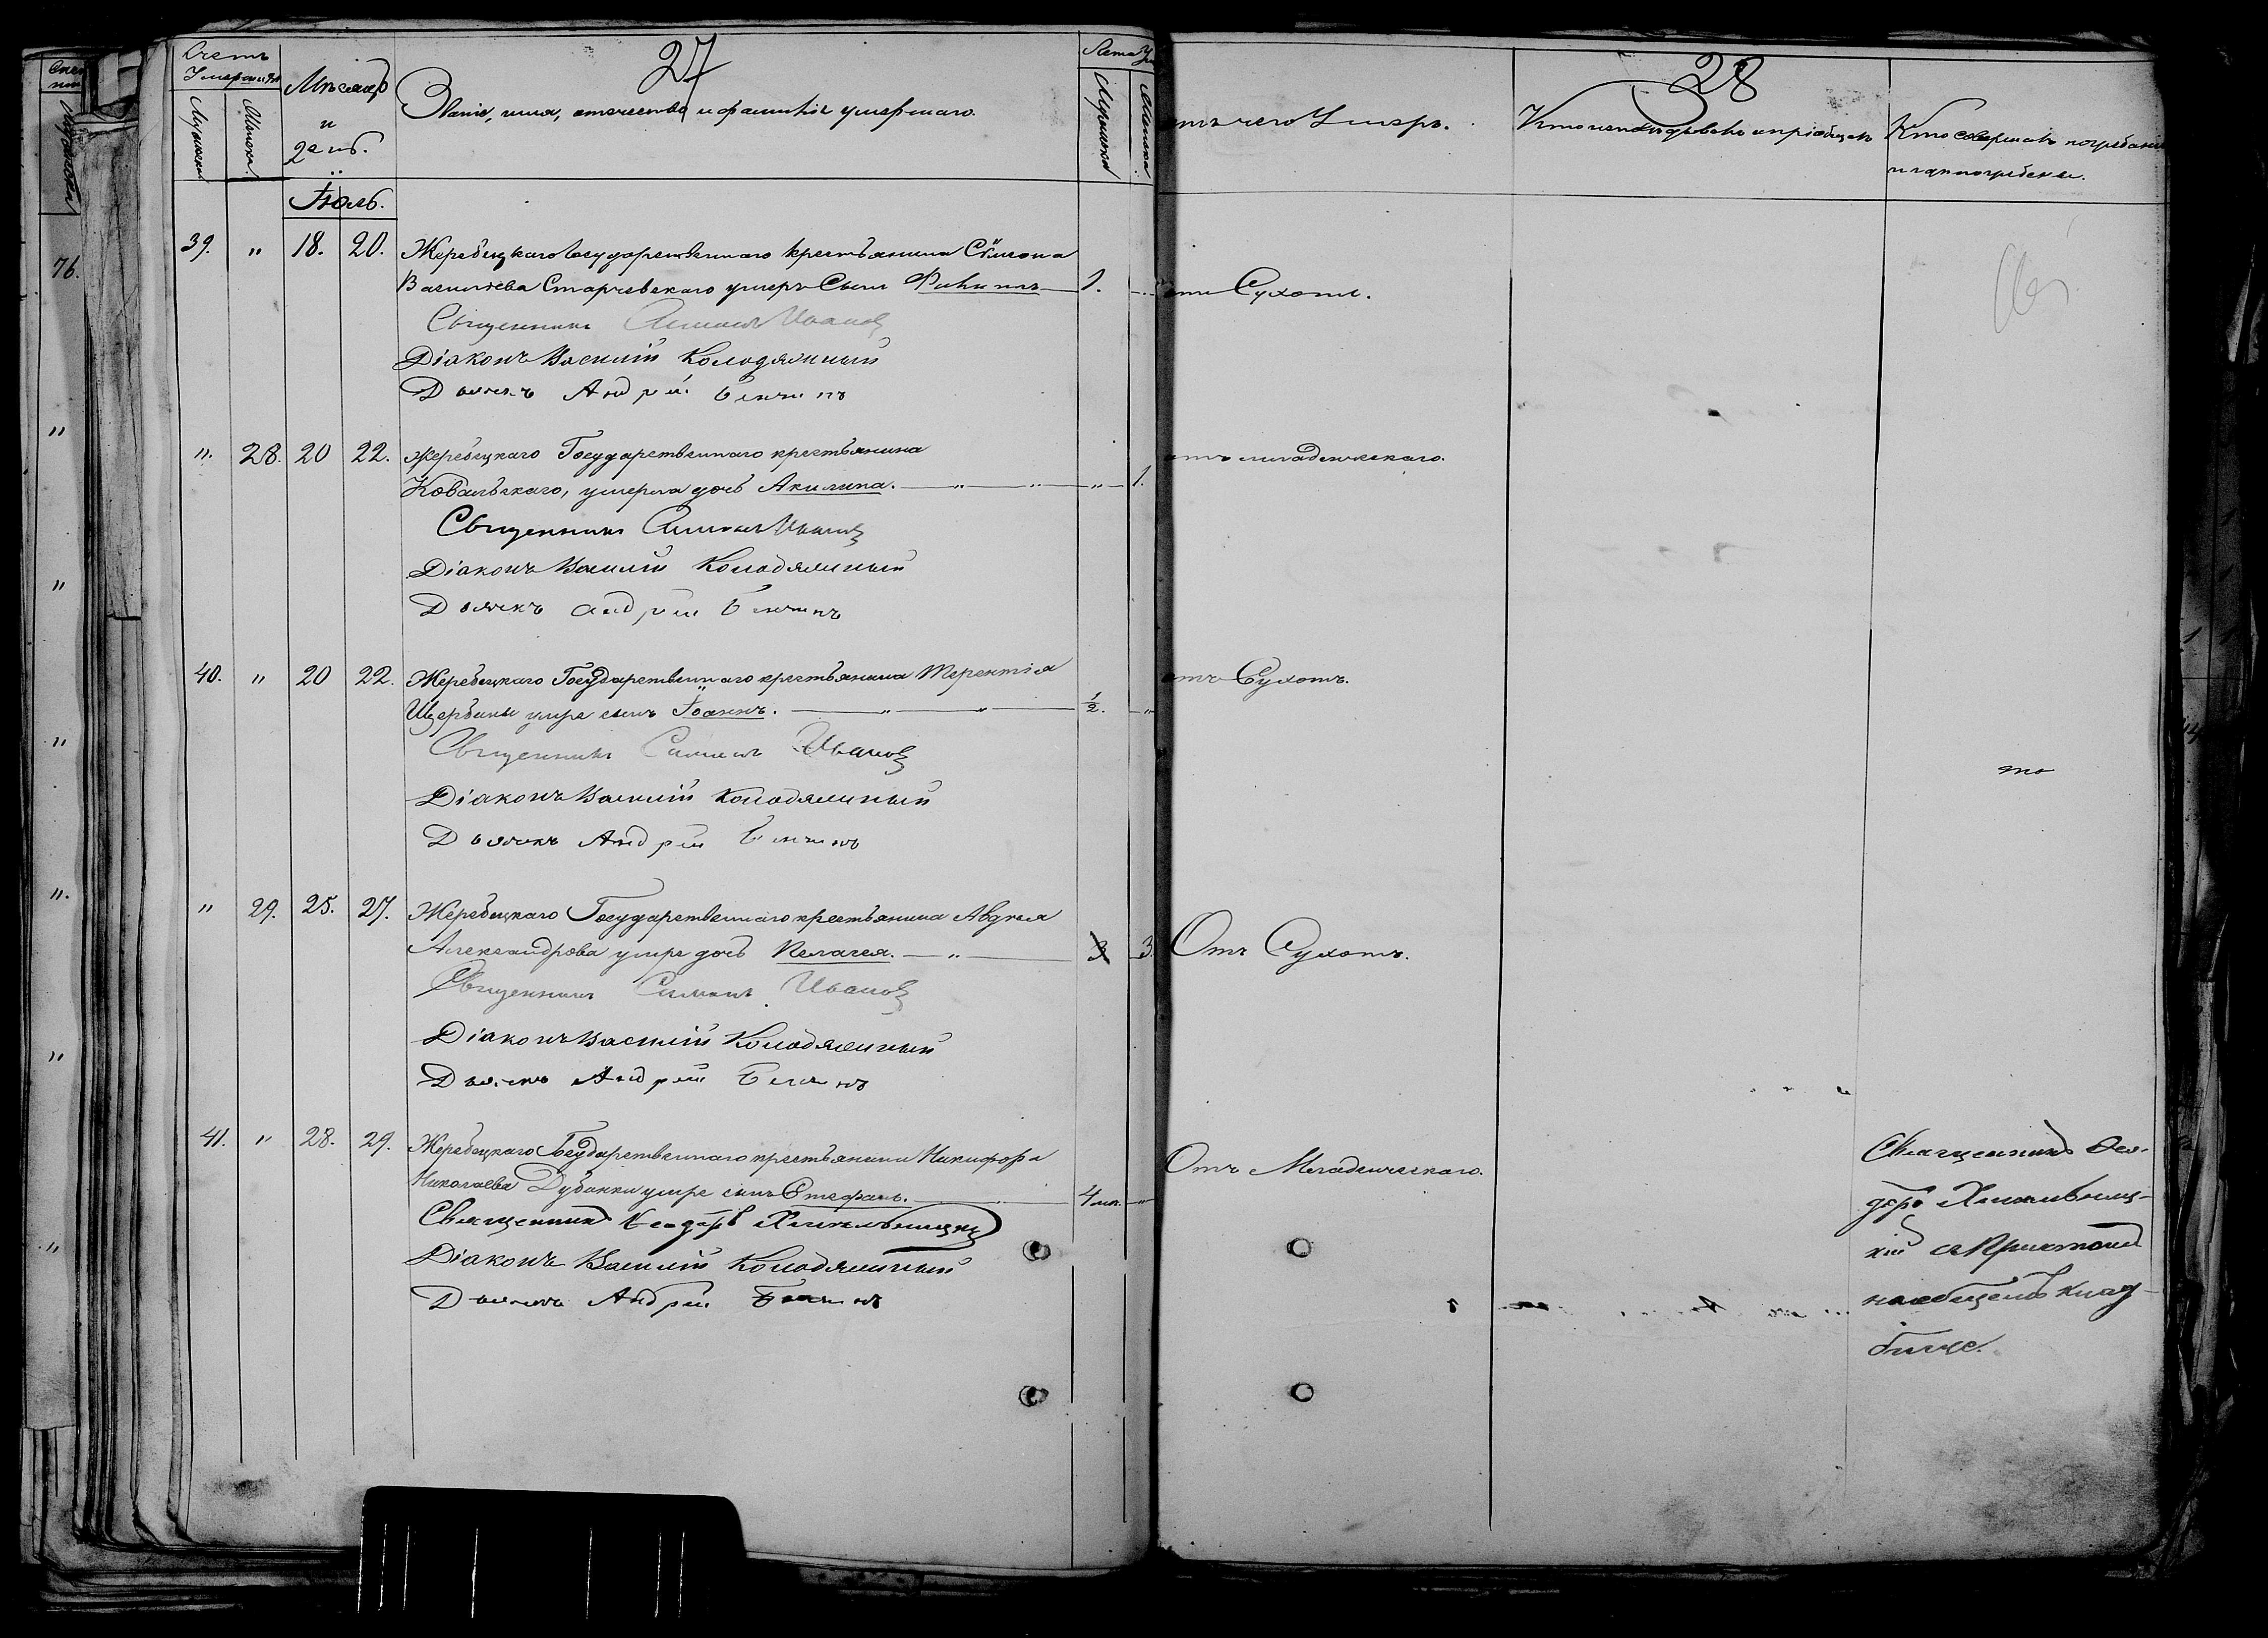 27
28
Счетъ Умершихъ
Мѣсяцъ и день.
Званіе, имя, отчество и фамилія умершаго.
Лета
Мужеска
Женска
отъ чего Умеръ.
Кто исповѣдывалъ и пріобщалъ
Кто совершалъ погребеніе
и гдѣ погребены.
Іюль.
39. " 18. 20. Жеребецкаго Государственнаго крестьянина Сѵмеона
Васильева Старчевскаго умеръ Сынъ Филиппъ 1. отъ Сухотъ.
Священникъ Симеонъ Ивановъ
Діаконъ Василій Колодяжный
Дьячекъ Андрей
". 28. 20 22. Жеребецкаго Государственнаго крестьянина
Ковальскаго, умерла дочь Акилина. " " " 1. отъ младенческаго.
Священникъ Симеонъ Ивановъ
Діаконъ Василій Колодяжный
Дьячекъ Андрей
40. " 20 22. Жеребецкаго Государственнаго крестьянина Терентія
Щербины умре сынъ Іоаннъ. " " 1/2. " отъ Сухотъ.
Священникъ Симеонъ Ивановъ
то
Діаконъ Василій Колодяжный
Дьячекъ Андрей
" 29. 25. 27. Жеребецкаго Государственнаго крестьянина Авдея
Александрова умре дочь Пелагея. " 3 3. Отъ Сухотъ.
Священникъ Симеонъ Ивановъ
Діаконъ Василій Колодяжный
Дьячекъ Андрей
41. " 28. 29. Жеребецкаго Государственнаго крестьянина Никифора
Николаева Дубинки умре сынъ Стефанъ. 4 мес. " Отъ Младенческаго.
Священникъ Ѳеодоръ Хмельницкій
Діаконъ Василій Колодяжный
Дьячекъ Андрей
Священникъ Ѳео-
доръ Хмельниц-
кій съ Причтомъ
на общемъ клад-
бище.
76.